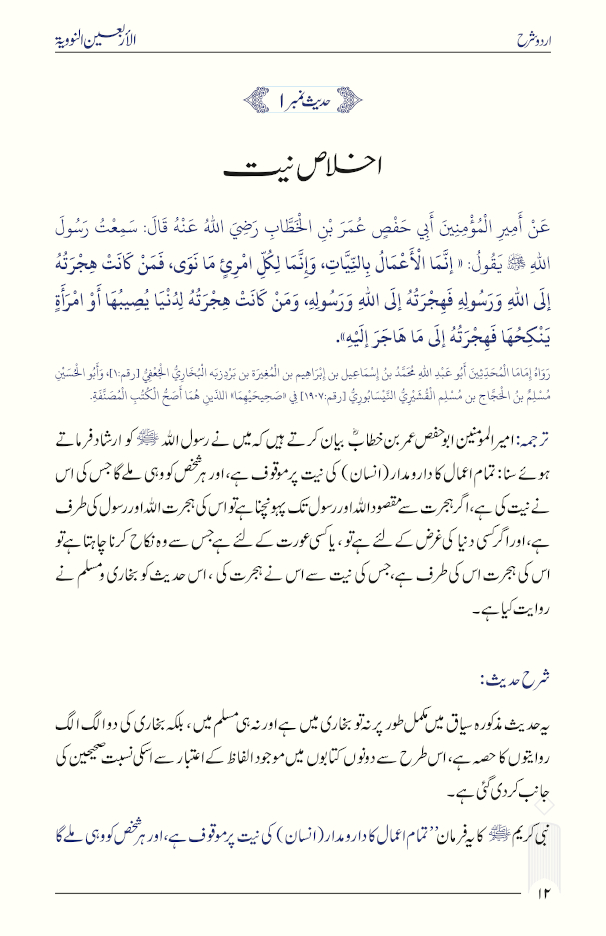 اردو شرح
الأربعین النوویۃ
حدیث نمبر ۱
اخلاص نیت
عَنْ أَمِيرِ الْمُؤْمِنِينَ أَبِي حَفْصٍ عُمَرَ بْنِ الْخَطَّابِ رَضِيَ اللهُ عَنْهُ قَالَ: سَمِعْتُ رَسُولَ
اللهِ ﷺ يَقُولُ: «إِنَّمَا الْأَعْمَالُ بِالنِّيَّاتِ، وَإِنَّمَا لِكُلِّ امْرِئٍ مَا نَوَى، فَمَنْ كَانَتْ هِجْرَتُهُ
إِلَى اللهِ وَرَسُولِهِ فَهِجْرَتُهُ إِلَى اللهِ وَرَسُولِهِ، وَمَنْ كَانَتْ هِجْرَتُهُ لِدُنْيَا يُصِيبُهَا أَوْ امْرَأَةٍ
يَنْكِحُهَا فَهِجْرَتُهُ إِلَى مَا هَاجَرَ إِلَيْهِ».
رَوَاهُ إِمَامَا الْمُحَدِّثِينَ أَبُو عَبْدِ اللهِ مُحَمَّدُ بنُ إِسْمَاعِيل بن إِبْرَاهِيم بن الْمُغِيرَة بن بَرْدِزبَه الْبُخَارِيُّ الْجُعْفِيُّ [رقم:۱]، وَأَبُو الْحُسَيْنِ
مُسْلِمٌ بنُ الْحَجَّاج بن مُسْلِم الْقُشَيْرِيُّ النَّيْسَابُورِيُّ [رقم:۱۹۰۷] فِي «صَحِيحَيْهِمَا» اللذَينِ هُمَا أَصَحُّ الْكُتُبِ الْمُصَنَّفَةِ.
ترجمہ: امیر المومنین ابو حفص عمر بن خطابؓ بیان کرتے ہیں کہ میں نے رسول اللہ ﷺ کو ارشاد فرماتے
ہوئے سنا: تمام اعمال کا دارومدار (انسان) کی نیت پر موقوف ہے، اور ہر شخص کو وہی ملے گا جس کی اس
نے نیت کی ہے، اگر ہجرت سے مقصود اللہ اور رسول تک پہونچنا ہے تو اس کی ہجرت اللہ اور رسول کی طرف
ہے، اور اگر کسی دنیا کی غرض کے لئے ہے تو، یا کسی عورت کے لئے ہے جس سے وہ نکاح کرنا چاہتا ہے تو
اس کی ہجرت اس کی طرف ہے، جس کی نیت سے اس نے ہجرت کی، اس حدیث کو بخاری و مسلم نے
روایت کیا ہے۔
شرح حدیث:
یہ حدیث مذکورہ سیاق میں مکمل طور پر نہ تو بخاری میں ہے اور نہ ہی مسلم میں، بلکہ بخاری کی دو الگ الگ
روایتوں کا حصہ ہے، اس طرح سے دونوں کتابوں میں موجود الفاظ کے اعتبار سے اسکی نسبت صحیحین کی
جانب کر دی گئی ہے۔
نبی کریم ﷺ کا یہ فرمان ’’تمام اعمال کا دارومدار (انسان) کی نیت پر موقوف ہے، اور ہر شخص کو وہی ملے گا
۱۲